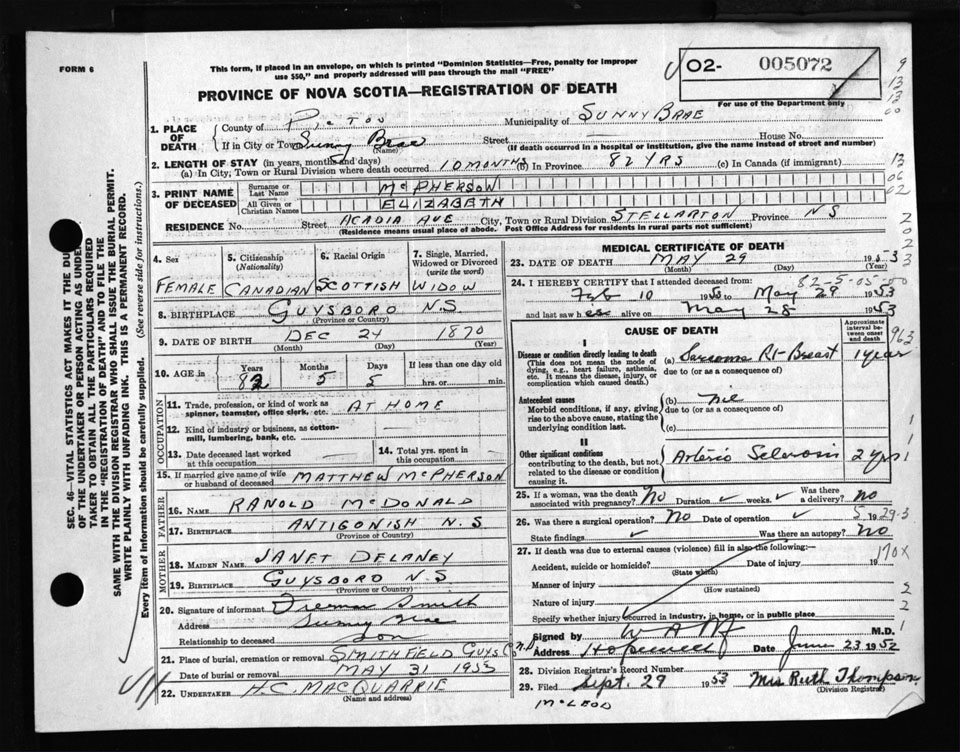 FORM 6
This form, if placed in an envelope, on which is printed "Dominion Statistics—Free, penalty for improper
use $50," and properly addressed will pass through the mail "FREE"
O2- 005072
For use of the Department only
PROVINCE OF NOVA SCOTIA—REGISTRATION OF DEATH
1. PLACE OF DEATH
County of PICTOU Municipality of SUNNY BRAE
If in City or Town Sunny Brae (Name) Street House No.
(If death occurred in a hospital or institution, give the name instead of street and number)
2. LENGTH OF STAY (in years, months and days)
(a) In City, Town or Rural Division where death occurred 10 MONTHS (b) In Province 82 YRS (c) In Canada (if immigrant)
3. PRINT NAME OF DECEASED
Surname or Last Name McPHERSON
All Given or Christian Names ELIZABETH
RESIDENCE No. Street ACADIA AVE City, Town or Rural Division STELLARTON Province NS
(Residence means usual place of abode. Post Office Address for residents in rural parts not sufficient)
4. Sex FEMALE
5. Citizenship (Nationality) CANADIAN
6. Racial Origin SCOTTISH
7. Single, Married, Widowed or Divorced (write the word) WIDOW
8. BIRTHPLACE GUYSBORO N.S.
(Province or Country)
9. DATE OF BIRTH DEC 24 1870
(Month) (Day) (Year)
10. AGE in Years 82 Months 5 Days 5 If less than one day old hrs. or min.
OCCUPATION
11. Trade, profession, or kind of work as spinner, teamster, office clerk, etc. AT HOME
12. Kind of industry or business, as cotton-mill, lumbering, bank, etc.
13. Date deceased last worked at this occupation
14. Total yrs. spent in this occupation
15. If married give name of wife or husband of deceased MATTHEW McPHERSON
FATHER
16. NAME RANOLD McDONALD
17. BIRTHPLACE ANTIGONISH N.S
(Province or Country)
MOTHER
18. MAIDEN NAME JANET DELANEY
19. BIRTHPLACE GUYSBORO N.S
(Province or Country)
20. Signature of informant Smith
Address Sunny Brae
Relationship to deceased son
21. Place of burial, cremation or removal SMITHFIELD GUYS CO N.S
Date of burial or removal MAY 31 1953
22. UNDERTAKER H.C. MACQUARRIE
MEDICAL CERTIFICATE OF DEATH
23. DATE OF DEATH MAY 29 1953
(Month) (Day) (Year)
82-5-05-00
24. I HEREBY CERTIFY that I attended deceased from:
Feb 10 1953 to May 29 1953
and last saw h alive on May 28 1953
CAUSE OF DEATH
Approximate interval between onset and death
I
Disease or condition directly leading to death
(This does not mean the mode of dying, e.g., heart failure, asthenia, etc. It means the disease, injury, or complication which caused death.)
(a) Sarcoma Rt-Breast 1 year
due to (or as a consequence of)
Antecedent causes
Morbid conditions, if any, giving rise to the above cause, stating the underlying condition last.
(b) nil
due to (or as a consequence of)
(c)
II
Other significant conditions
contributing to the death, but not related to the disease or condition causing it.
Arterio Sclerosis 2 yrs
25. If a woman, was the death associated with pregnancy? No Duration weeks. Was there a delivery? no
26. Was there a surgical operation? No Date of operation
5 29-3
State findings Was there an autopsy? No
27. If death was due to external causes (violence) fill in also the following:—
170X
Accident, suicide or homicide? Date of injury 19
(State which)
Manner of injury
(How sustained)
Nature of injury
Specify whether injury occurred in industry, in home, or in public place
Signed by M.D.
Address Hopewell Date June 23 1952
28. Division Registrar's Record Number
29. Filed Sept. 29 1953 Mrs Ruth Thompson
(Division Registrar)
McLEOD
SEC. 46—VITAL STATISTICS ACT MAKES IT THE DUTY
OF THE UNDERTAKER OR PERSON ACTING AS UNDER-
TAKER TO OBTAIN ALL THE PARTICULARS REQUIRED
IN THE "REGISTRATION OF DEATH" AND TO FILE THE
SAME WITH THE DIVISION REGISTRAR WHO SHALL ISSUE THE BURIAL PERMIT.
WRITE PLAINLY WITH UNFADING INK. THIS IS A PERMANENT RECORD.
Every item of information should be carefully supplied. (See reverse side for instructions.)
9
13
13
00
13
06
02
2
0
2
3
3
963
1
1
1
2
2
1